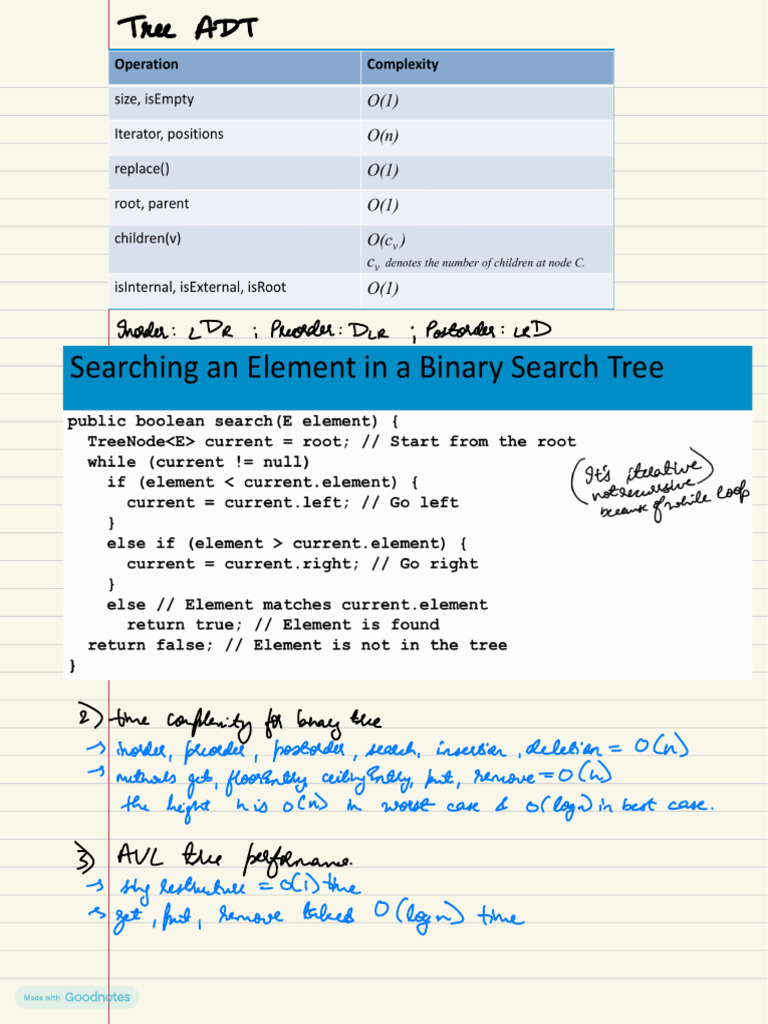 Tree ADT
Operation Complexity
size, isEmpty O(1)
Iterator, positions O(n)
replace() O(1)
root, parent O(1)
children(v) O(cv)
cv denotes the number of children at node C.
isInternal, isExternal, isRoot O(1)
Inorder: LDR ; Preorder: DLR ; Postorder: LRD
Searching an Element in a Binary Search Tree
public boolean search(E element) {
TreeNode<E> current = root; // Start from the root
while (current != null)
if (element < current.element) {
current = current.left; // Go left
}
else if (element > current.element) {
current = current.right; // Go right
}
else // Element matches current.element
return true; // Element is found
return false; // Element is not in the tree
}
(It's iterative
not recursive)
because of while loop
2) time complexity for binary tree
→ inorder, preorder, postorder, search, insertion, deletion = O(n)
→ methods get, floorEntry, ceilingEntry, put, remove = O(h)
the height h is O(n) in worst case & O(logn) in best case.
3) AVL tree performance.
→ restructure = O(1) time
→ get, put, remove takes O(logn) time
Made with Goodnotes